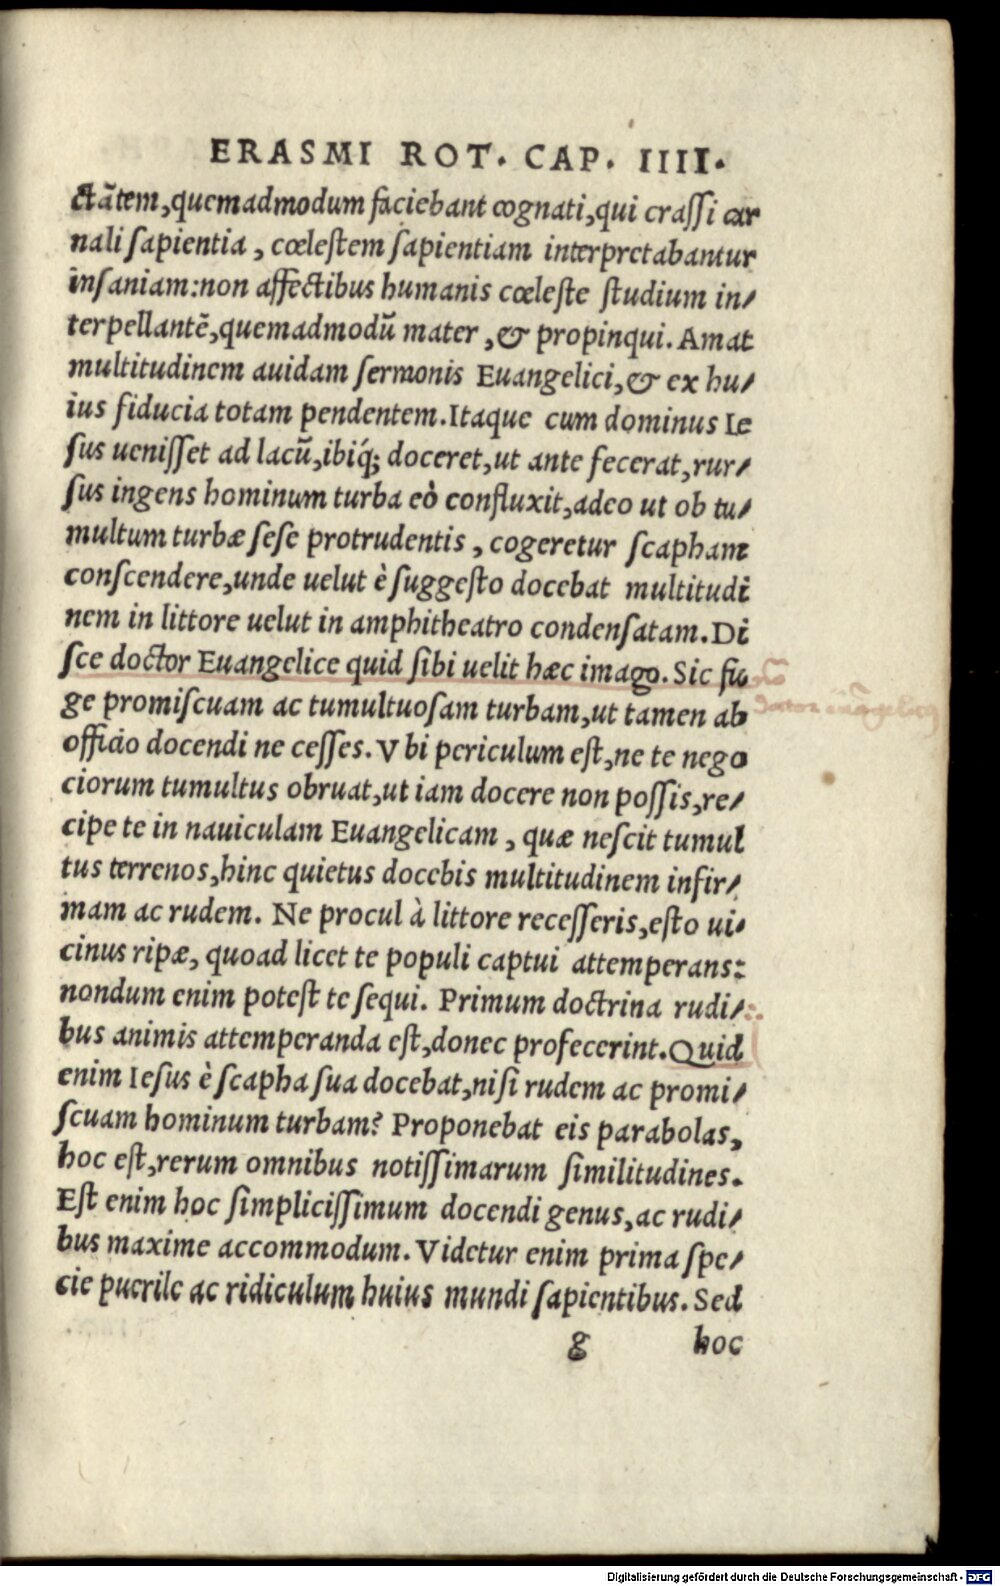 ERASMI ROT. CAP. IIII.
ctãtem,quemadmodum faciebant cognati,qui crassi car
nali sapientia, cœlestem sapientiam interpretabantur
insaniam:non affectibus humanis cœleste studium in/
terpellantẽ,quemadmodũ mater,& propinqui. Amat
multitudinem auidam sermonis Euangelici,& ex hu/
ius fiducia totam pendentem.Itaque cum dominus Ie
sus uenisset ad lacũ,ibiq́; doceret,ut ante fecerat,rur/
sus ingens hominum turba eò confluxit,adeo ut ob tu/
multum turbæ sese protrudentis, cogeretur scapham
conscendere,unde uelut è suggesto docebat multitudi
nem in littore uelut in amphitheatro condensatam.Di
sce doctor Euangelice quid sibi uelit hæc imago. Sic fu
ge promiscuam ac tumultuosam turbam,ut tamen ab
officio docendi ne cesses. Vbi periculum est,ne te nego
ciorum tumultus obruat,ut iam docere non possis,re/
cipe te in nauiculam Euangelicam, quæ nescit tumul
tus terrenos,hinc quietus docebis multitudinem infir/
mam ac rudem. Ne procul à littore recesseris,esto ui/
cinus ripæ, quoad licet te populi captui attemperans:
nondum enim potest te sequi. Primum doctrina rudi/
bus animis attemperanda est,donec profecerint.Quid
enim Iesus è scapha sua docebat,nisi rudem ac promi/
scuam hominum turbam? Proponebat eis parabolas,
hoc est,rerum omnibus notissimarum similitudines.
Est enim hoc simplicissimum docendi genus,ac rudi/
bus maxime accommodum. Videtur enim prima spe/
cie puerile ac ridiculum huius mundi sapientibus. Sed
g hoc
Digitalisierung gefördert durch die Deutsche Forschungsgemeinschaft - DFG